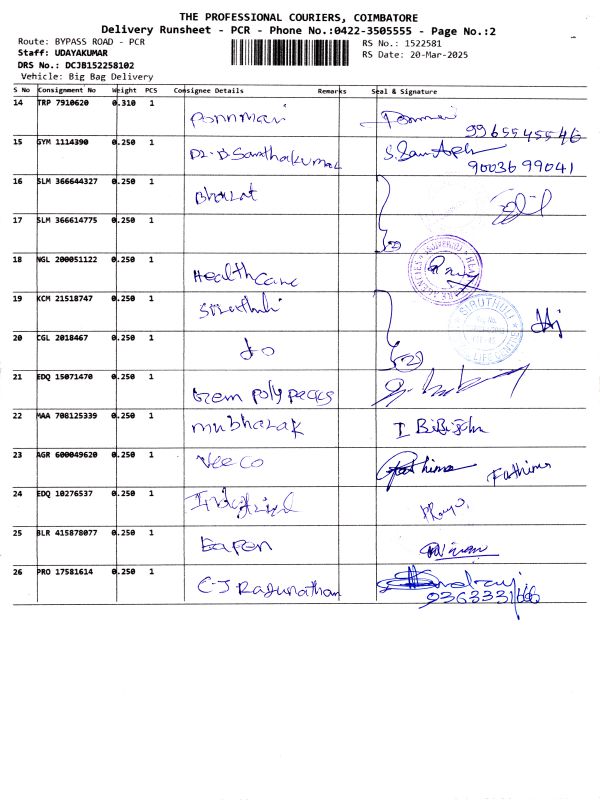 THE PROFESSIONAL COURIERS, COIMBATORE
Delivery Runsheet - PCR - Phone No.:0422-3505555 - Page No.:2
Route: BYPASS ROAD - PCR
RS No.: 1522581
Staff: UDAYAKUMAR
RS Date: 20-Mar-2025
DRS No.: DCJB152258102
Vehicle: Big Bag Delivery
S No Consignment No Weight PCS Consignee Details Remarks Seal & Signature
14 TRP 7910620 0.310 1 Ponnmari
9965545546
15 GYM 1114390 0.250 1 Dr. D Santhakumar
9003699041
16 SLM 366644327 0.250 1 Bharat
17 SLM 366614775 0.250 1
18 NGL 200051122 0.250 1 Healthcare
19 KCM 21518747 0.250 1 Siruthuli
SIRUTHULI
20 CGL 2018467 0.250 1 do
21 EDQ 15071470 0.250 1 Gem poly packs
22 MAA 708125339 0.250 1 mubharak I BiBijohn
23 AGR 600049620 0.250 1 Veeco Fathima Fathima
24 EDQ 10276537 0.250 1
25 BLR 415878077 0.250 1 Eapen
26 PRO 17581614 0.250 1 C J Ragunathan
9363331666